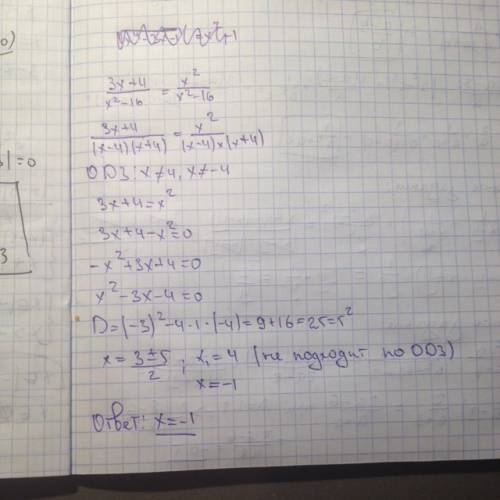 3x+4/x²-16 = x²/x²-16
3x+4/(x-4)(x+4) = x²/(x-4)x(x+4)
ОДЗ: x≠4, x≠-4
3x+4=x²
3x+4-x²=0
-x²+3x+4=0
x²-3x-4=0
D=(-3)²-4·1·(-4)=9+16=25=5²
x=3±5/2; x₁=4 (не подходит по ОДЗ)
x=-1
Ответ: x=-1
0)
3|=0
3